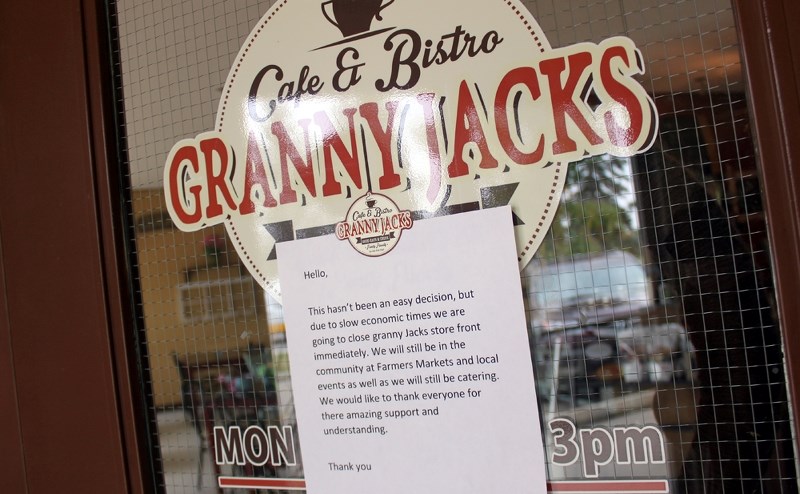 Cafe & Bistro
GRANNY JACKS
Cafe & Bistro
GRANNY JACKS
Hello,
This hasn't been an easy decision, but
due to slow economic times we are
going to close granny Jacks store front
immediately. We will still be in the
community at Farmers Markets and local
events as well as we will still be catering.
We would like to thank everyone for
there amazing support and
understanding.
Thank you
MON
3pm